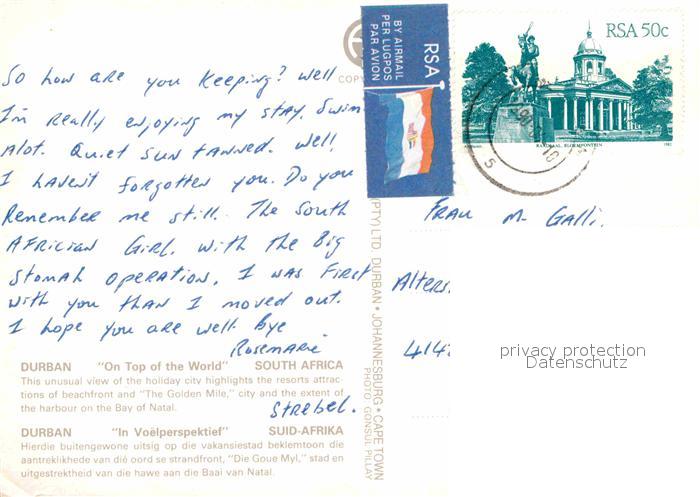 So how are you keeping? Well
I'm really enjoying my stay. Swim
alot. Quiet sun tanned. Well,
I haven't forgotten you. Do you
remember me still. The South
African Girl. With the Big
Stomah operation. I was First
with you than I moved out.
I hope you are well. Bye
Rosemarie
Strebel.
DURBAN "On Top of the World" SOUTH AFRICA
This unusual view of the holiday city highlights the resorts attrac-
tions of beachfront and "The Golden Mile," city and the extent of
the harbour on the Bay of Natal.
DURBAN "In Voëlperspektief" SUID-AFRIKA
Hierdie buitengewone uitsig op die vakansiestad beklemtoon die
aantreklikhede van dié oord se strandfront, "Die Goue Myl," stad en
uitgestrektheid van die hawe aan die Baai van Natal.
COPY
(PTY) LTD. DURBAN • JOHANNESBURG • CAPE TOWN
PHOTO: GONSUL PILLAY
BY AIRMAIL
PER LUGPOS
PAR AVION
RSA
RSA 50c
RAADSAAL, BLOEMFONTEIN
1982
Frau M. Galli.
Alters.
414
privacy protection
Datenschutz